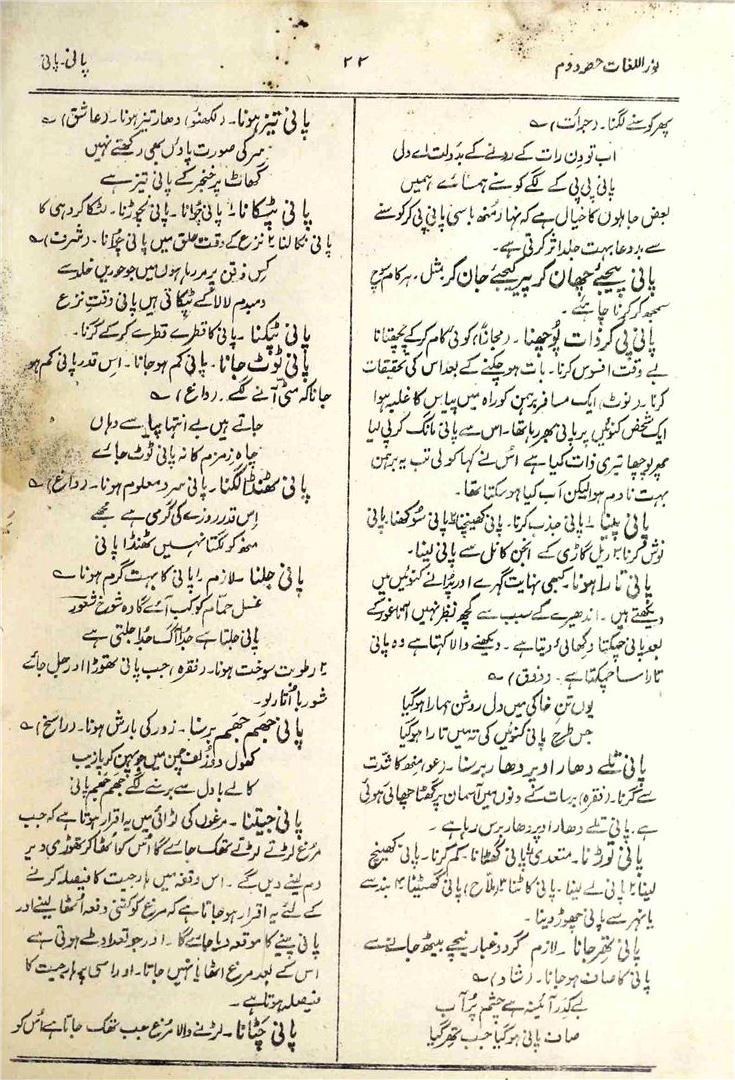 نوراللغات حصہ دوم
۲۲
پانی۔ پانی
پھر کوسنے لگنا۔ (جرأت) ؎
اب تو دن رات کے رونے کے بدولت اے دل
پانی پی پی کے لگے کوسنے ہمسائے ہمیں
بعض جاہلوں کا خیال ہے کہ نہار منھ باسی پانی پی کر کوسنے
سے بد دعا بہت جلد اثر کرتی ہے۔
پانی پیجئے چھان کر پیر کیجئے جان کر۔ مثل۔ ہر کام سوچ
سمجھ کر کرنا چاہئے۔
پانی پی کر ذات پوچھنا۔ (مجازاً) کوئی کام کر کے پچھتانا
بے وقت افسوس کرنا۔ بات ہو چکنے کے بعد اس کی تحقیقات
کرنا۔ (نوٹ) ایک مسافر برہمن کو راہ میں پیاس کا غلبہ ہوا
ایک شخص کنوئیں پر پانی بھر رہا تھا۔ اس سے پانی مانگ کر پی لیا
پھر پوچھا تیری ذات کیا ہے اس نے کہا کولی تب یہ برہمن
بہت نادم ہوا لیکن اب کیا ہو سکتا تھا۔
پانی پینا ۱۔ پانی جذب کرنا۔ پانی کھینچنا ۲ پانی سوکھنا۔ پانی
نوش کرنا ۳ ریل گاڑی کے انجن کا نل سے پانی لینا۔
پانی تارا ہونا۔ کبھی نہایت گہرے اور پرانے کنوئیں میں
دیکھتے ہیں۔ اندھیرے کے سبب سے کچھ نظر نہیں آتا غور کے
بعد پانی چمکتا دکھائی دیتا ہے۔ دیکھنے والا کہتا ہے وہ پانی
تارا سا چمکتا ہے۔ (ذوق) ؎
یوں تن خاکی میں دل روشن ہمارا ہو گیا
جس طرح پانی کنوئیں کی تہ میں تارا ہو گیا
پانی تلے دھار اوپر دھار برسنا۔ (عو) منھ کا شدت
سے گرنا۔ (فقرہ) برسات کے دنوں میں آسمان پر گھٹا چھائی ہوئی
ہے۔ پانی تلے دھار اوپر دھار برس رہا ہے۔
پانی توڑنا۔ متعدی ۱ پانی گھٹانا۔ کم کرنا۔ پانی کھینچ
لینا ۲ پانی لے لینا۔ پانی کاٹنا ۳ (ملاح) پانی گھسیٹنا ۴ بند سے
یا نہر سے پانی چھوڑ دینا۔
پانی تھر جانا۔ لازم۔ گرد و غبار نیچے بیٹھ جانے سے
پانی کا صاف ہو جانا۔ (شاد) ؎
بے کدر آئینہ ہے چشم پر آب
صاف پانی ہو گیا جب تھر گیا
پانی تیز ہونا۔ (لکھنؤ) دھار تیز ہونا۔ (عاشق) ؎
سر کی صورت پاؤں بھی رکھتے نہیں
گھاٹ پر خنجر کے پانی تیز ہے
پانی ٹپکانا ۱ پانی چوانا۔ پانی نچوڑنا۔ لٹکا کر دہی کا
پانی نکالنا ۲ نزع کے وقت حلق میں پانی چوانا۔ (شرف) ؎
کس وفن پر مر رہا ہوں میں جو حوریں خلد سے
دمبدم لا لا کے ٹپکاتی ہیں پانی وقت نزع
پانی ٹپکنا۔ پانی کا قطرے قطرے کر کے گرنا۔
پانی ٹوٹ جانا۔ پانی کم ہو جانا۔ اس قدر پانی کم ہو
جانا کہ مٹی آنے لگے۔ (داغ) ؎
جاتے ہیں بے انتہا پیاسے وہاں
چاہ زمزم کا نہ پانی ٹوٹ جائے
پانی ٹھنڈا لگنا۔ پانی سرد معلوم ہونا۔ (داغ) ؎
اس قدر روزے کی گرمی ہے مجھے
منھ کو لگتا نہیں ٹھنڈا پانی
پانی جلنا۔ لازم ۱ پانی کا بہت گرم ہونا ؎
غسل حمام کو کب آئے گا وہ شوخ شعور
پانی جلتا ہے جدا آگ جدا جلتی ہے
۲ رطوبت سوخت ہونا۔ (فقرہ) جب پانی تھوڑا اور جل جائے
شوربا اتار لو۔
پانی جھم جھم برسنا۔ زور کی بارش ہونا۔ (راسخ) ؎
کھول دو زلف چمن میں جو پہن کر پازیب
کالے بادل سے برسنے لگے جھم جھم پانی
پانی جیتنا۔ مرغوں کی لڑائی میں یہ اقرار ہوتا ہے کہ جب
مرغ لڑتے لڑتے تھک جائے گا اس کو اٹھا کر تھوڑی دیر
دم لینے دیں گے۔ اس وقفہ میں ہار جیت کا فیصلہ کرنے
کے لئے یہ اقرار ہو جاتا ہے کہ مرغ کو کتنی دفعہ اٹھا لینے اور
پانی پینے کا موقعہ دیا جائے گا۔ اور جو تعداد طے ہوتی ہے
اس کے بعد مرغ اٹھایا نہیں جاتا۔ اور اسی پر ہار جیت کا
فیصلہ ہوتا ہے۔
پانی چٹانا۔ لڑنے والا مرغ جب تھک جاتا ہے اس کو